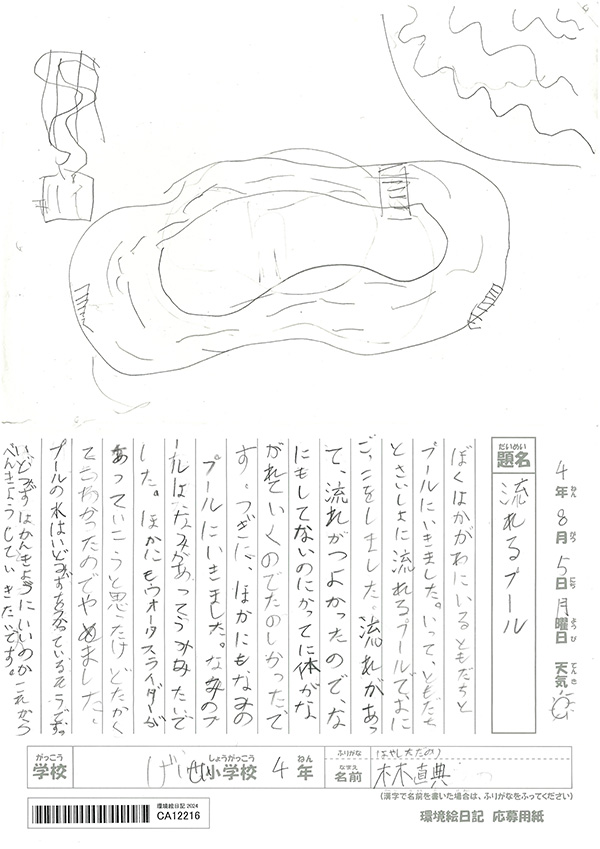 4年8月5日月曜日 天気
ねん がつ にち ようび てんき
だいめい
題名
流れるプール
ぼくはかがわにいるともだちと
プールにいきました。いって、ともだち
とさいしょに流れるプールで、おに
ごっこをしました。流れがあっ
て、流れがつよかったので、な
にもしてないのにかってに体がな
がれていくのでたのしかったで
す。つぎに、ほかにもなみの
プールにいきました。なみのプ
ールはなみがあってうみみたいで
した。ほかにもウォータスライダーが
あっていこうと思たけどたかく
てこわかったのでやめました。
プールの水はいどみずをつかっているそうです。
いどみずはかんきょうにいいのかこれから
べんきょうしていきたいです。
がっこう
学校
しょうがっこう
小学校
4年
ねん
ふりがな
なまえ
名前
林直典
(漢字で名前を書いた場合は、ふりがなをふってください)
環境絵日記 2024
CA12216
環境絵日記 応募用紙